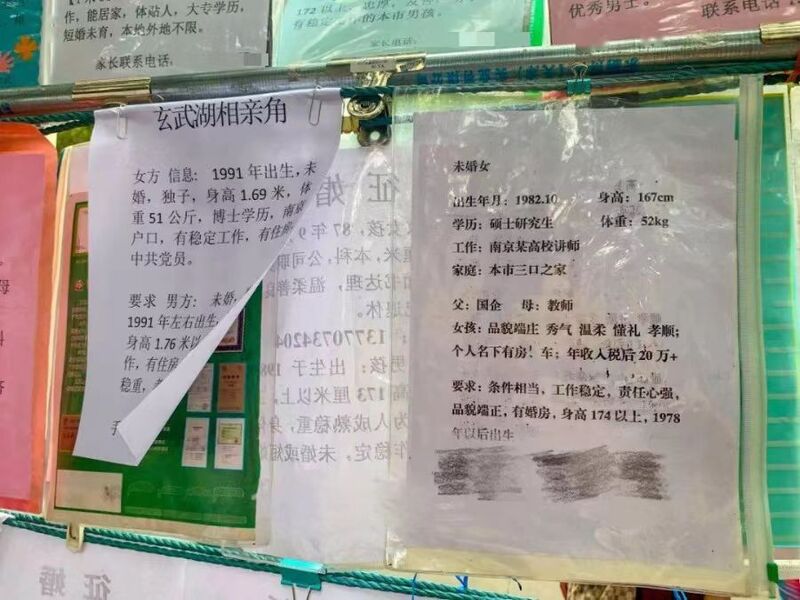 作，能居家，体站人，大专学历，
短婚未育，本地外地不限。
家长联系电话：
有稳定工作的本市男孩。
家长电话：
优秀男士。
联系电话
玄武湖相亲角
女方 信息： 1991 年出生，未
婚，独子，身高 1.69 米，体
重 51 公斤，博士学历，南京
户口，有稳定工作，有住房
中共党员。
要求 男方： 未婚，
1991 年左右出生
身高 1.76 米以
作，有住房
稳重，
征 婚
女孩，87 年 9
厘米，本科，公司职
知书达理，温柔善良
退休
13770734204
男孩：出生于 198
高 173 厘米以上，
为人成熟稳重，身体
作稳定，未婚或短婚
未婚女
出生年月：1982.10 身高：167cm
学历：硕士研究生 体重：52kg
工作：南京某高校讲师
家庭：本市三口之家
父：国企 母：教师
女孩：品貌端庄 秀气 温柔 懂礼 孝顺；
个人名下有房！车；年收入税后 20 万+
要求：条件相当，工作稳定，责任心强，
品貌端正，有婚房，身高 174 以上，1978
年以后出生
征 婚